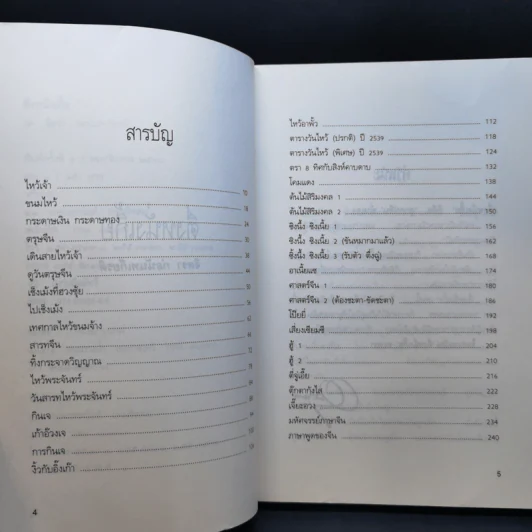 สารบัญ
ไหว้เจ้า
ขนมไหว้
กระดาษเงิน กระดาษทอง
ตรุษจีน
เดินสายไหว้เจ้า
ดูวันตรุษจีน
เช็งเม้งที่ฮวงซุ้ย
ไปเช็งเม้ง
เทศกาลไหว้ขนมจ้าง
สารทจีน
ทิ้งกระจาดวิญญาณ
ไหว้พระจันทร์
วันสารทไหว้พระจันทร์
กินเจ
เก้าอ๊วงเจ
การกินเจ
งิ้วกับอึ้งเก๊า
4
ไหว้อาพั้ว 112
ตารางวันไหว้ (ปรกติ) ปี 2539 118
ตารางวันไหว้ (พิเศษ) ปี 2539 124
ตรา 8 ทิศกับสิงห์คาบดาบ 132
โคมแดง 138
ต้นไม้สิริมงคล 1 144
ต้นไม้สิริมงคล 2 150
ซิงนึ้ง ซิงเนี้ย 1 156
ซิงนึ้ง ซิงเนี้ย 2 (ขันหมากมาแล้ว) 162
ซิ้งนึ้ง ซิงเนี้ย 3 (รับตัว ตึ่งฉู่) 168
อาเนี้ยแซ 174
ศาสตร์จีน 1 180
ศาสตร์จีน 2 (ต้องชะตา-ขัดชะตา) 186
โป๊ยยี่ 192
เสี่ยงเซียมซี 198
ฮู้ 1 204
ฮู้ 2 210
ตี่จู่เอี๊ย 216
ตุ๊กตากังไส 222
เจี๊ยะฮวง 228
มหัศจรรย์ภาษาจีน 234
ภาษาพูดของจีน 240
5